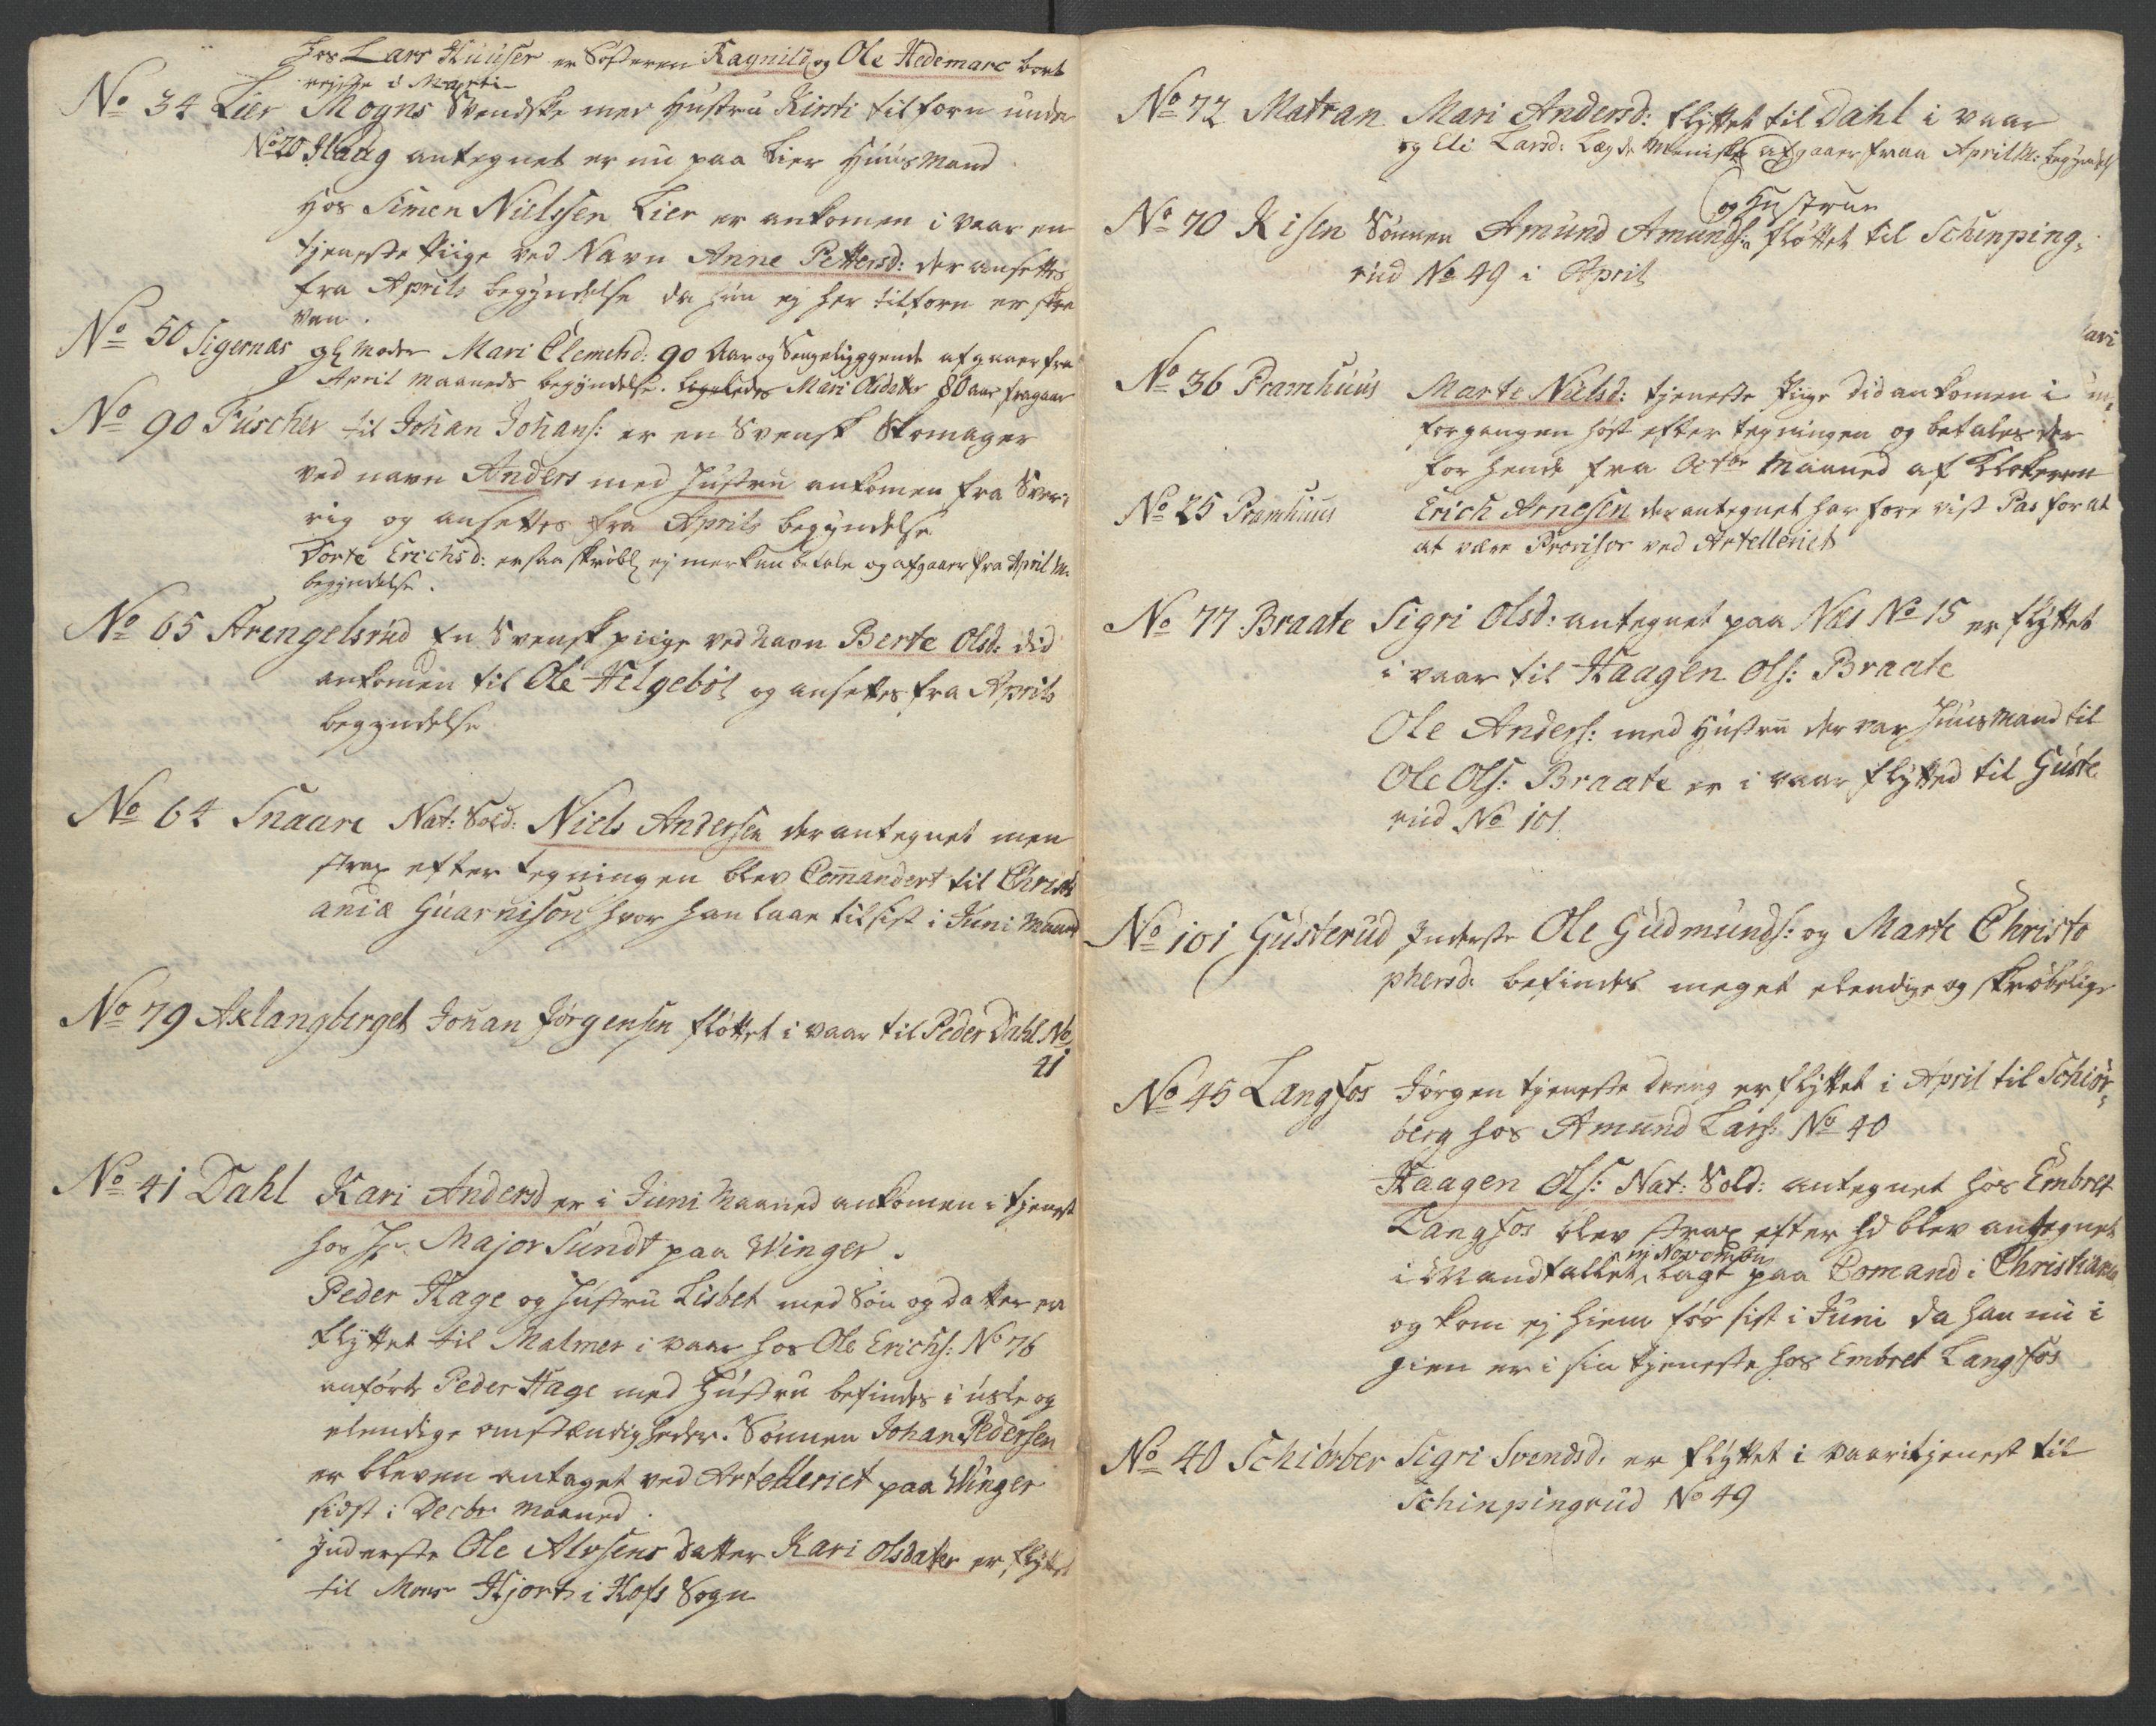 hos Lars Huuser er Søsteren Ragnild og Ole Hedemarc bort
reyste i Marti
No 34 Lier Mogns Svendske med Hustru Kirsti tilforn under
No 20 Haug antegnet er nu paa Lier Huusmand
Hos Simen Nielssen Lier er ankomen i vaar en
tjeneste Piige ved Navn Anne Pettersd: der ansettes
fra Aprils begyndelse da hun ej her tilforn er skre
ven.
No 50 Sigernæs gl Moder Mari Clemetsd: 90 Aar og Sengeliggende afgaaer fra
April Maaneds begyndelse. ligeledes Mari Olsdatter 80 aar fragaar
No 90 Fuscher til Johan Johans: er en Svensk Skomager
ved navn Anders med Hustru ankomen fra Sver,
rig og ansettes fra Aprils begyndelse
Dorte Erichsd: er saa skrøbl ej mer kan betale og afgaaer fra April M:
begyndelse.
No 65 Arengelsrud En Svensk piige ved navn Berte Olsd: did
ankomen til Ole Helgebøl og ansettes fra Aprils
begyndelse
No 64 Snaare Nat: Sold: Niels Andersen der antegnet men
strax efter tegningen blev Comandert til Christi
ania Guarnison hvor han laae til sist i Juni Maaned
No 79 Axlangberget Johan Jørgensen fløttet i vaar til Peder Dahl No
41
No 41 Dahl Kari Andersd er i Juni Maaned ankomen i tjenest
hos Hr. Major Sundt paa Winger.
Peder Hage og Hustru Lisbet med Søn og datter er
flyttet til Malmer i vaar hos Ole Erichs: No 76
anførte Peder Hage med Hustru befindes i usle og
elendige omstændigheder. Sønnen Johan Pedersen
er bleven antaget ved Artelleriet paa Winger
sidst i Decbr Maaned.
Inderste Ole Alvsens datter Kari Olsdatter er flyttet
til Monsr Hjort i Hofs Sogn
No 72 Matran Mari Andersd: flyttet til Dahl i vaar
og Eli Larsd: Lægds Meniske afgaaer fraa April M: begyndels
No 70 Kisen Sønnen Amund Amunds: og Hustrue fløttet til Schinping,
rud No 49 i April
No 36 Pramhuus Marte Nielsd: tjeneste Piige did ankomen i
forgangen høst efter tegningen og betales der
for hende fra Octbr Maaned af Klokeren
No 25 Pramhuus Erich Arnesen der antegnet har fore vist Pas for at
at være Provisor ved Artelleriet
No 77 Braate Sigri Olsd: antegnet paa Næs No 15 er flyttet
i vaar til Haagen Ols: Braate
Ole Anders: med Hustru der var Huusmand til
Ole Ols: Braate er i vaar flytted til Guste
rud No 101
No 101 Gusterud Inderste Ole Gudmunds: og Marte Christo
phersd: befindes meget elendige og skrøbelige
No 45 Langfos Jørgen tjeneste dreng er flyttet i April til Schiør,
berg hos Amund Lars: No 40
Haagen Ols: Nat: Sold: antegnet hos Embret
Langfos blev strax efter hd blev antegnet
i Mandtallet, inj November lagt paa Comand i Christiania
og kom ej hiem før sist i Juni da han nu i
gien er i sin tjeneste hos Embret Langfos
No 40 Schiørber Sigri Svendsd: er flyttet i vaar i tjenest til
Schinpingrud No 49